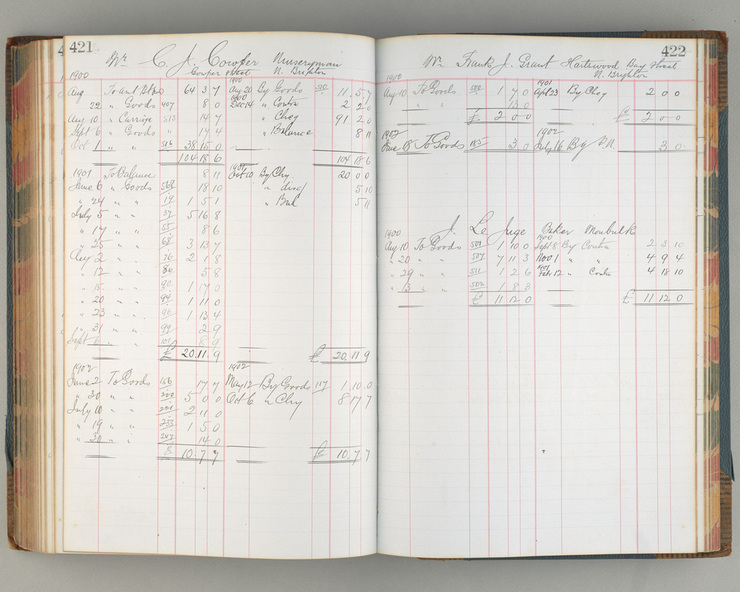 421
Mr C. J. Cowper Nurseryman
Cowper West N. Brixton
1900 1900
Aug To amt 64 3 7 Aug 20 By Goods 11 5 7
22 " Goods 407 8 0 Dec 14 " Contra 2 2 0
Aug 10 " Carriage 14 7 " Chq 91 2 0
Sept 6 " Goods 17 4 " Balance 8 11
Oct 1 " " 38 15 0
104 18 6 104 18 6
1901 To Balance 8 11 Oct 10 By Chq 20 0 0
June 6 " Goods 18 10 " disc 5 10
" 24 " " 1 5 1 " Bal 5 11
July 5 " " 5 16 8
" 17 " " 8 6
" 25 " " 68 3 13 7
Aug 2 " " 76 2 1 8
" 12 " " 80 5 8
" 15 " " 1 17 0
" 20 " " 94 1 11 0
" 23 " " 1 13 4
" 31 " " 99 2 9
Sept 8 9
£ 20 11 9 £ 20 11 9
1902 1902
June 2 To Goods 166 17 7 May 12 By Goods 117 1 10 0
" 20 " " 5 0 0 Oct 6 " Chq 8 17 7
July 10 " " 2 11 0
" 19 " " 1 5 0
" 30 " " 14 0
£ 10 7 7 £ 10 7 7
422
Mr Frank J. Grant Hartswood Bay Street
N. Brighton
1900 1901
Aug 10 To Goods 1 7 0 Apl 23 By Chq 2 0 0
" " 13 0
£ 2 0 0 £ 2 0 0
1902
To Goods 3 0 July 16 By 3 0
J. Le Juge Baker Monbulk
1900 1900
Aug 10 To Goods 501 1 10 0 Sept 8 By Contra 2 3 10
" 20 " " 507 7 11 3 Nov 1 " " 4 9 4
" 29 " " 511 1 2 6 Feb 12 " Contra 4 18 10
" 13 " " 502 1 8 3
£ 11 12 0 £ 11 12 0